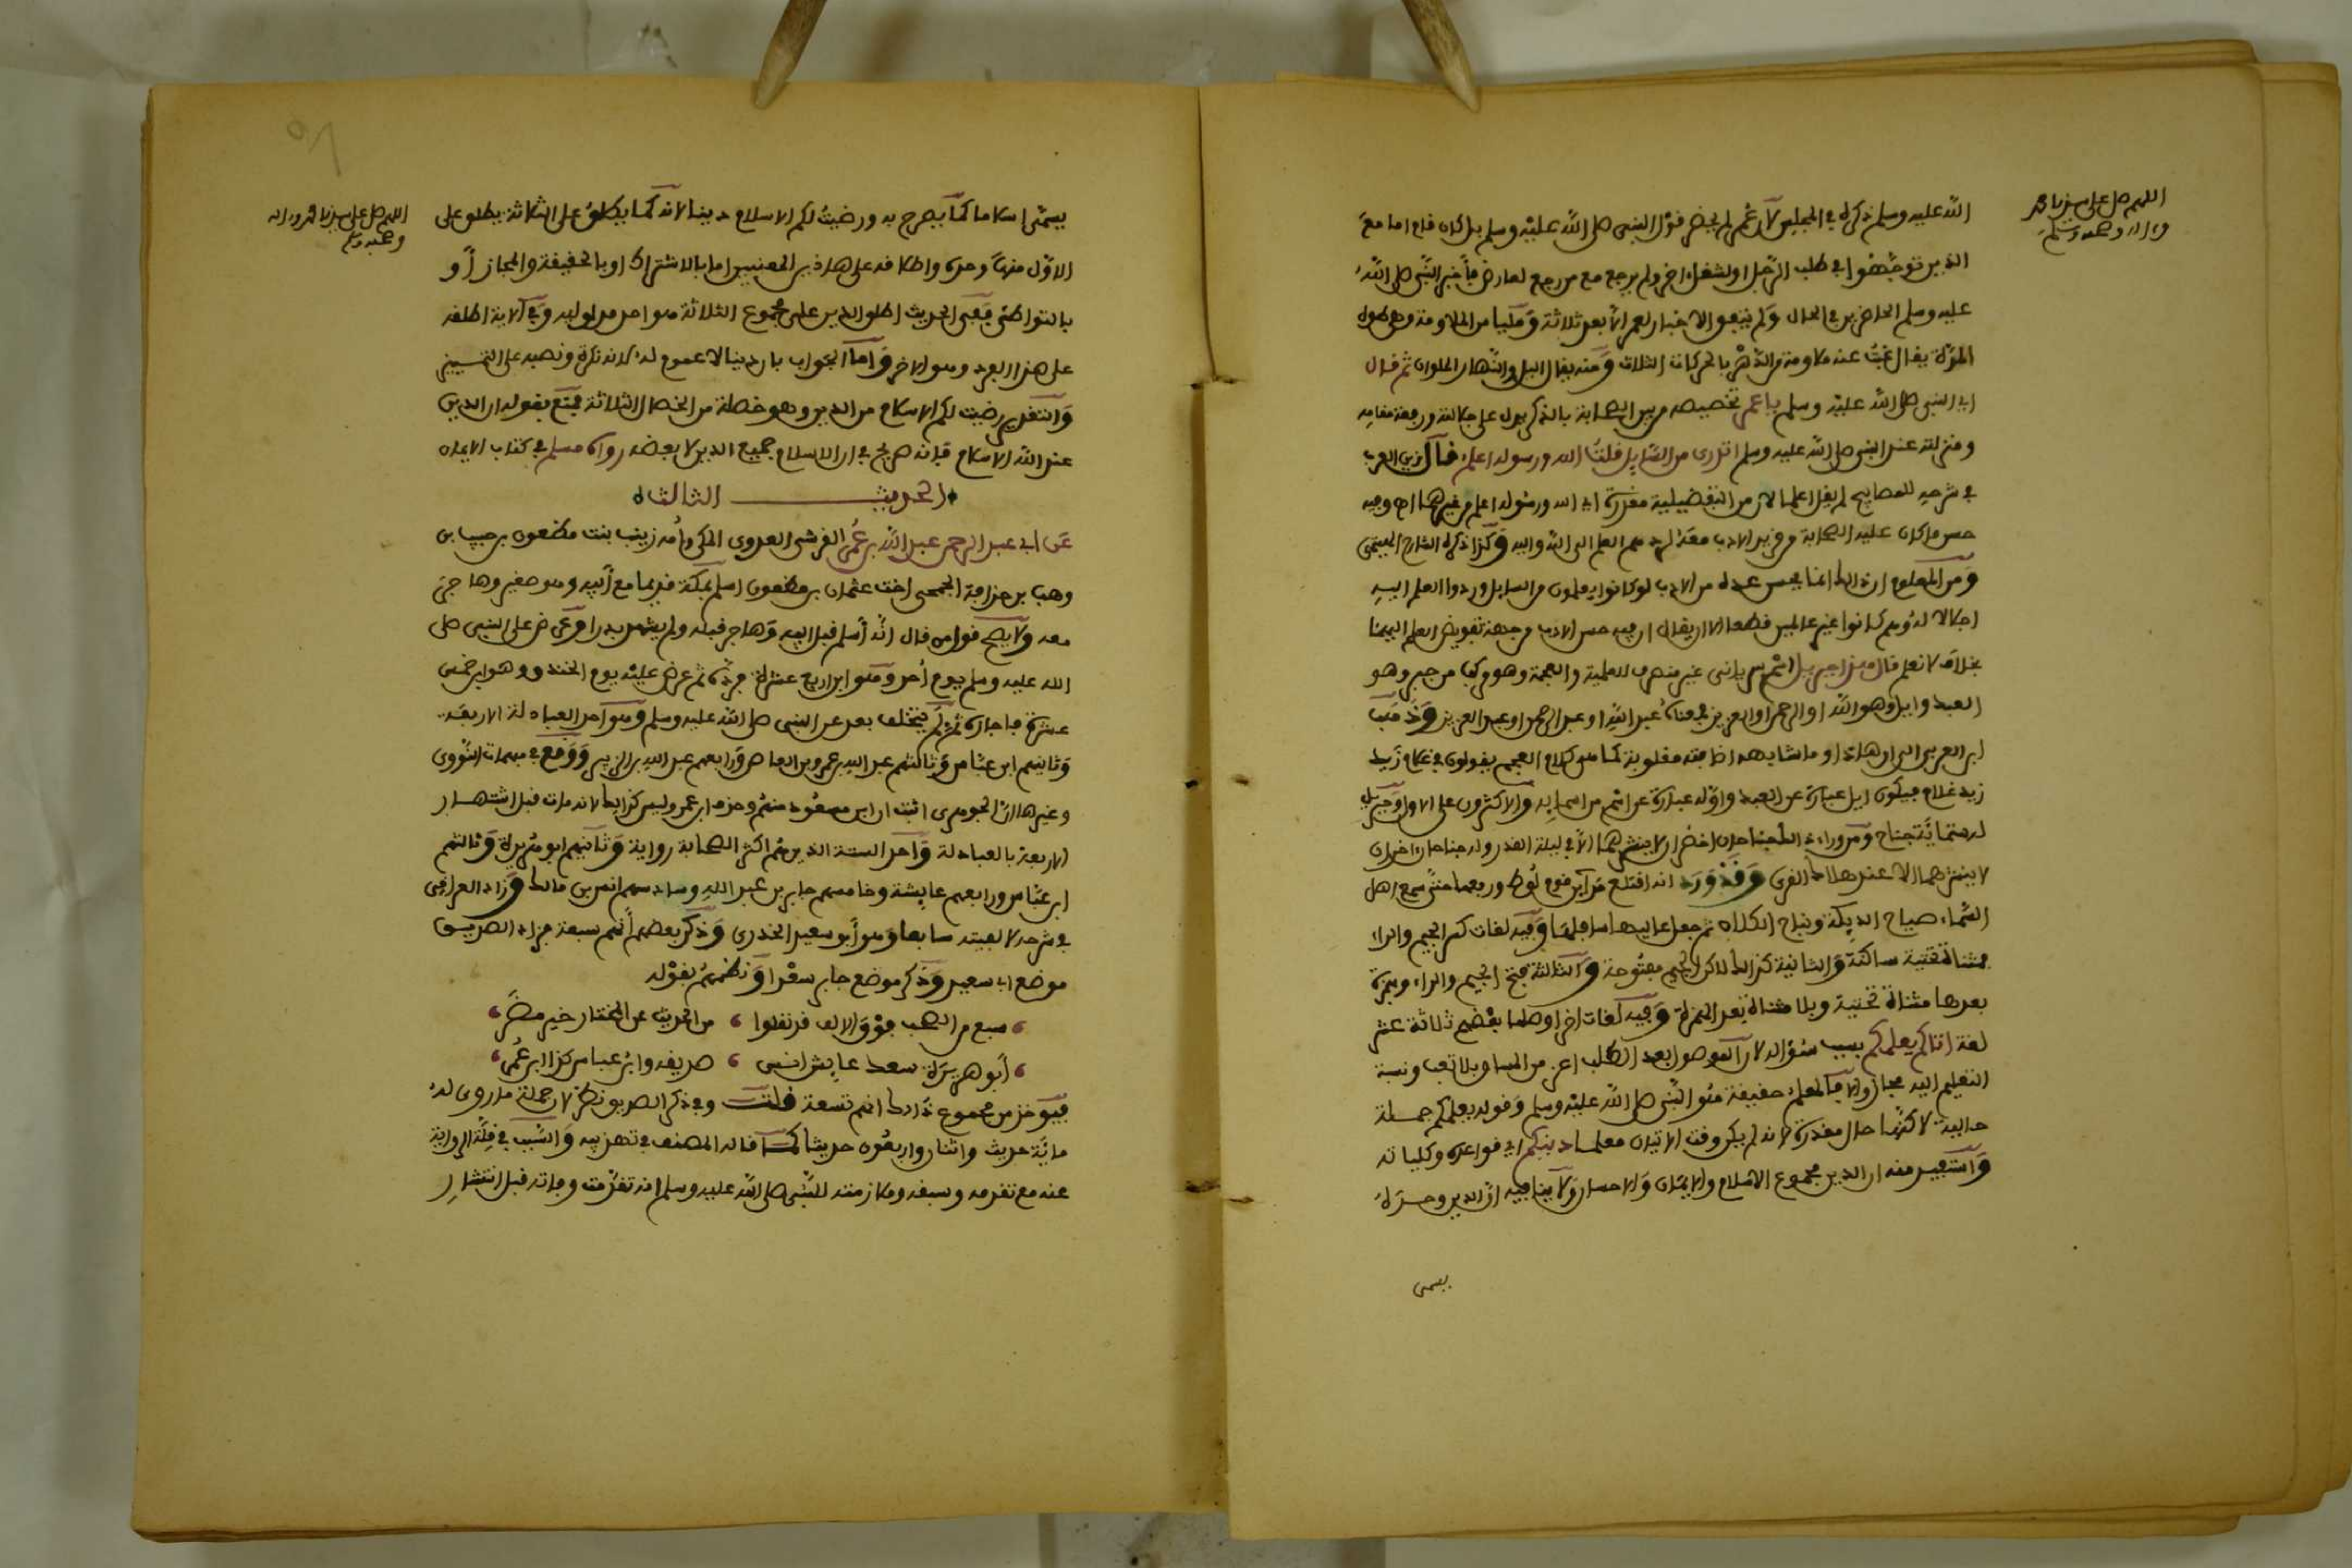 اللهم صل على سيدنا محمد
وءاله وصحبه وسلم
الله عليه وسلم ذكره في المجلس لان عمر لم يحضر قول النبي صلى الله عليه وسلم بل كان قام اما مع
الذين توجهوا في طلب الرجل او لشغل اخر ولم يرجع مع من رجع لعارض فأخبر النبي صلى الله
عليه وسلم الحاضرين في الحال ولم يتفق الاخبار لعمر الا بعد ثلاثة ومليا من الملاوة وهي طول
المدة يقال غبت عنه ملاوة من الدهر بالحركات الثلاث ومنه يقال لليل والنهار الملوان ثم قال
اي النبي صلى الله عليه وسلم يا عمر تخصيصه من بين الصحابة بالذكر يدل على جلالته ورفعة مقامه
ومنزلته عند النبي صلى الله عليه وسلم اتدري من السايل قلت الله ورسوله اعلم قال زين العرب
في شرحه للمصابيح لم يقل اعلما لان من التفضيلية مقدرة اي الله ورسوله اعلم من غيرهما اه وفيه
حسن ما كان عليه الصحابة من مزيد الادب معه لردهم العلم الى الله واليه وكذا ذكره الشارح الهيتمي
ومن المعلوم ان ذلك انما يحسن عده من الادب لو كانوا يعلمون من السايل وردوا العلم اليه
اجلالا له وهم كانوا غير عالمين قطعا الا ان يقال ان فيه حسن الادب من جهة تفويض العلم اليهما
بخلاف لا نعلم قال هذا جبريل اسم سرياني غير منصرف للعلمية والعجمة وهو مركب من جبر وهو
العبد وايل وهو الله او الرحمن او العزيز فمعناه عبد الله او عبد الرحمن او عبد العزيز وذهب
ابن العربي الى ان هاذا وما شابهه اضافته مقلوبة كما هي كلام العجم يقولون في غلام زيد
زيد غلام فيكون ايل عبارة عن العبد واوله عبارة عن اسم من اسمايه والاكثرون على الاول وجبريل
له ستماية جناح ومن وراء ذلك جناحان اخضران لا ينشرهما الا في ليلة القدر وله جناحان اخران
لا ينشرهما الا عند هلاك القرى وقد ورد انه اقتلع مداين قوم لوط ورفعها حتى سمع اهل
السماء صياح الديكة ونباح الكلاب ثم جعل عاليها سافلها وفيه لغات كسر الجيم والراء
بمثناة تحتية ساكنة والثانية كذلك لاكن الجيم مفتوحة والثالثة بفتح الجيم والراء وبهمزة
بعدها مثناة تحتية وبلا مثناة بعد الهمزة وفيه لغات اخر اوصلها بعضهم ثلاثة عشر
لغة اتاكم يعلمكم بسبب سؤاله لان الموصول بعد الطلب اعز من المساق بلا تعب ونسبة
التعليم اليه مجاز والا فالمعلم حقيقة هو النبي صلى الله عليه وسلم وقوله يعلمكم جملة
حالية لاكنها حال مقدرة لانه لم يكن وقت الاتيان معلما دينكم اي قواعده وكلياته
واستفيد منه ان الدين مجموع الاسلام والايمان والاحسان ولا ينافيه ان الدين وحده
يسمى
اللهم صل على سيدنا محمد وءاله
وصحبه وسلم
يسمى اسلاما كما يصرح به ورضيت لكم الاسلام دينا لانه كما يطلق على الثلاثة يطلق على
الاول منها وحده واطلاقه على هاذين المعنيين اما بالاشتراك او بالحقيقة والمجاز أو
بالتواطئ ففي الحديث اطلق الدين على مجموع الثلاثة هو احد مدلوليه وفي الاية اطلقه
على هذا الفرد وهو الاخر واما الجواب بان دينا لا عموم له لانه نكرة ونصبه على التمييز
والتقدير رضيت لكم الاسلام من الدين وهو خصلة من الخصال الثلاثة فيمنع بقوله ان الدين
عند الله الاسلام فانه صريح في ان الاسلام جميع الدين لا بعضه رواه مسلم في كتاب الايمان
الحديث الثالث
عن ابي عبد الرحمن عبد الله بن عمر القرشي العدوي المكي وأمه زينب بنت مظعون بن حبيب بن
وهب بن حذافة الجمحي اخت عثمان بن مظعون اسلم بمكة قديما مع أبيه وهو صغير وهاجر
معه ولا يصح قول من قال انه أسلم قبل ابيه وهاجر قبله ولم يشهد بدرا وعرض على النبي صلى
الله عليه وسلم يوم أحد وهو ابن اربع عشرة فرده ثم عرض عليه يوم الخندق وهو ابن خمس
عشرة فاجازه ثم لم يتخلف بعد عن النبي صلى الله عليه وسلم وهو احد العبادلة الاربعة
وثانيهم ابن عباس وثالثهم عبد الله بن عمرو بن العاص ورابعهم عبد الله بن الزبير ووقع في مبهمات النووي
وغيرها ان الجوهري اثبت ان ابن مسعود منهم وحذف ابن عمر وليس كذلك لانه مات قبل اشتهار
الاربعة بالعبادلة واحد الستة الذين هم اكثر الصحابة رواية وثانيهم ابو هريرة وثالثهم
ابن عباس ورابعهم عايشة وخامسهم جابر بن عبد الله وسادسهم انس بن مالك وزاد العراقي
في شرحه لالفيته سابعا وهو أبو سعيد الخدري وذكر بعضهم أنهم سبعة فزاد الصديق
موضع ابي سعيد وذكر موضع جابر سعدا ونظمهم بقوله
سبع من الصحب فوق الالف قد نقلوا ، من الحديث عن المختار خير مضر
أبو هريرة سعد عايش انس ، صديقه وابن عباس كذا ابن عمر
فيؤخذ من مجموع ذلك انهم تسعة قلت وفي ذكر الصديق نظر لان جملة ما روي له
ماية حديث واثنان واربعون حديثا كما قاله المصنف في تهذيبه والسبب في قلة الرواية
عنه مع تقدمه وسبقه وملازمته للنبي صلى الله عليه وسلم انه تقدمت وفاته قبل انتشار